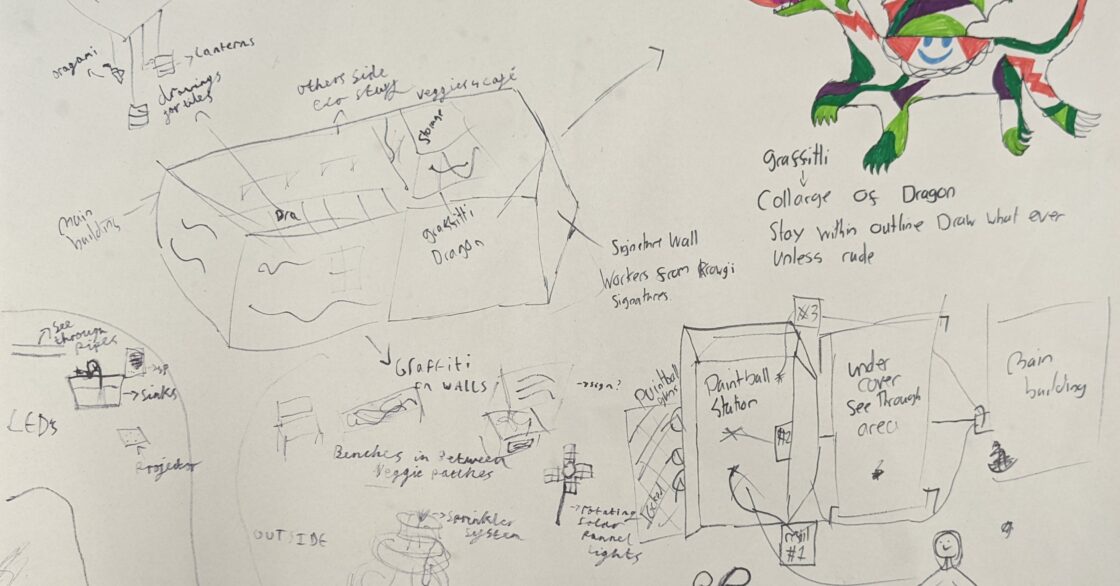 oragami
Lanterns
drawings
for tiles
others side
eco stuff
veggies 4 café
Storage
main
building
Dra
graffitti
Dragon
Signature Wall
Workers from
Signatures.
graffitti
Collarge of Dragon
Stay within outline Draw what ever
Unless rude
See
through
pipes
Sinks
LEDs
Projector
Graffiti
on WALLS
sign?
Benches in between
Veggie patches
OUTSIDE
Sprinkler
system
rotating
Solar
Pannel
Lights
Paintball
Locked
Paintball
Station
#3
#2
#1
under
cover
See Through
area
main
building